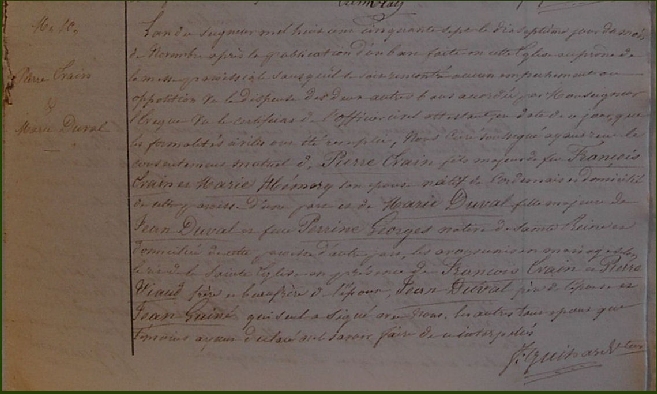 Pierre Crain
&
Marie Duval
L'an du Seigneur mil huit cent cinquante sept le dix septième jour du mois
de Novembre après la publication d'un ban faite en cette Eglise au prône de
la messe paroissiale sans qu'il se soit rencontré aucun empêchement ou
opposition vu la dispense des deux autres bans accordée par Monseigneur
l'Evêque vu le certificat de l'officier civil attestant en date de ce jour, que
les formalités civiles ont été remplies, Nous Curé soussigné ayant reçu le
consentement mutuel de Pierre Crain fils majeur de feu François
Crain et Marie son épouse natif de et domicilié
de cette paroisse d'une part et de Marie Duval fille majeure de
Jean Duval et feue Perrine Georges native de Sainte Reine et
domiciliée de cette paroisse d'autre part, les avons unis en mariage
la Sainte Eglise en présence de François Crain et Pierre
Viaud frère et beau frère de l'époux, Jean Duval père de l'épouse et
Jean qui seul a signé avec Nous, les autres tant époux que
témoins ayant déclaré ne savoir faire de ce interpellés